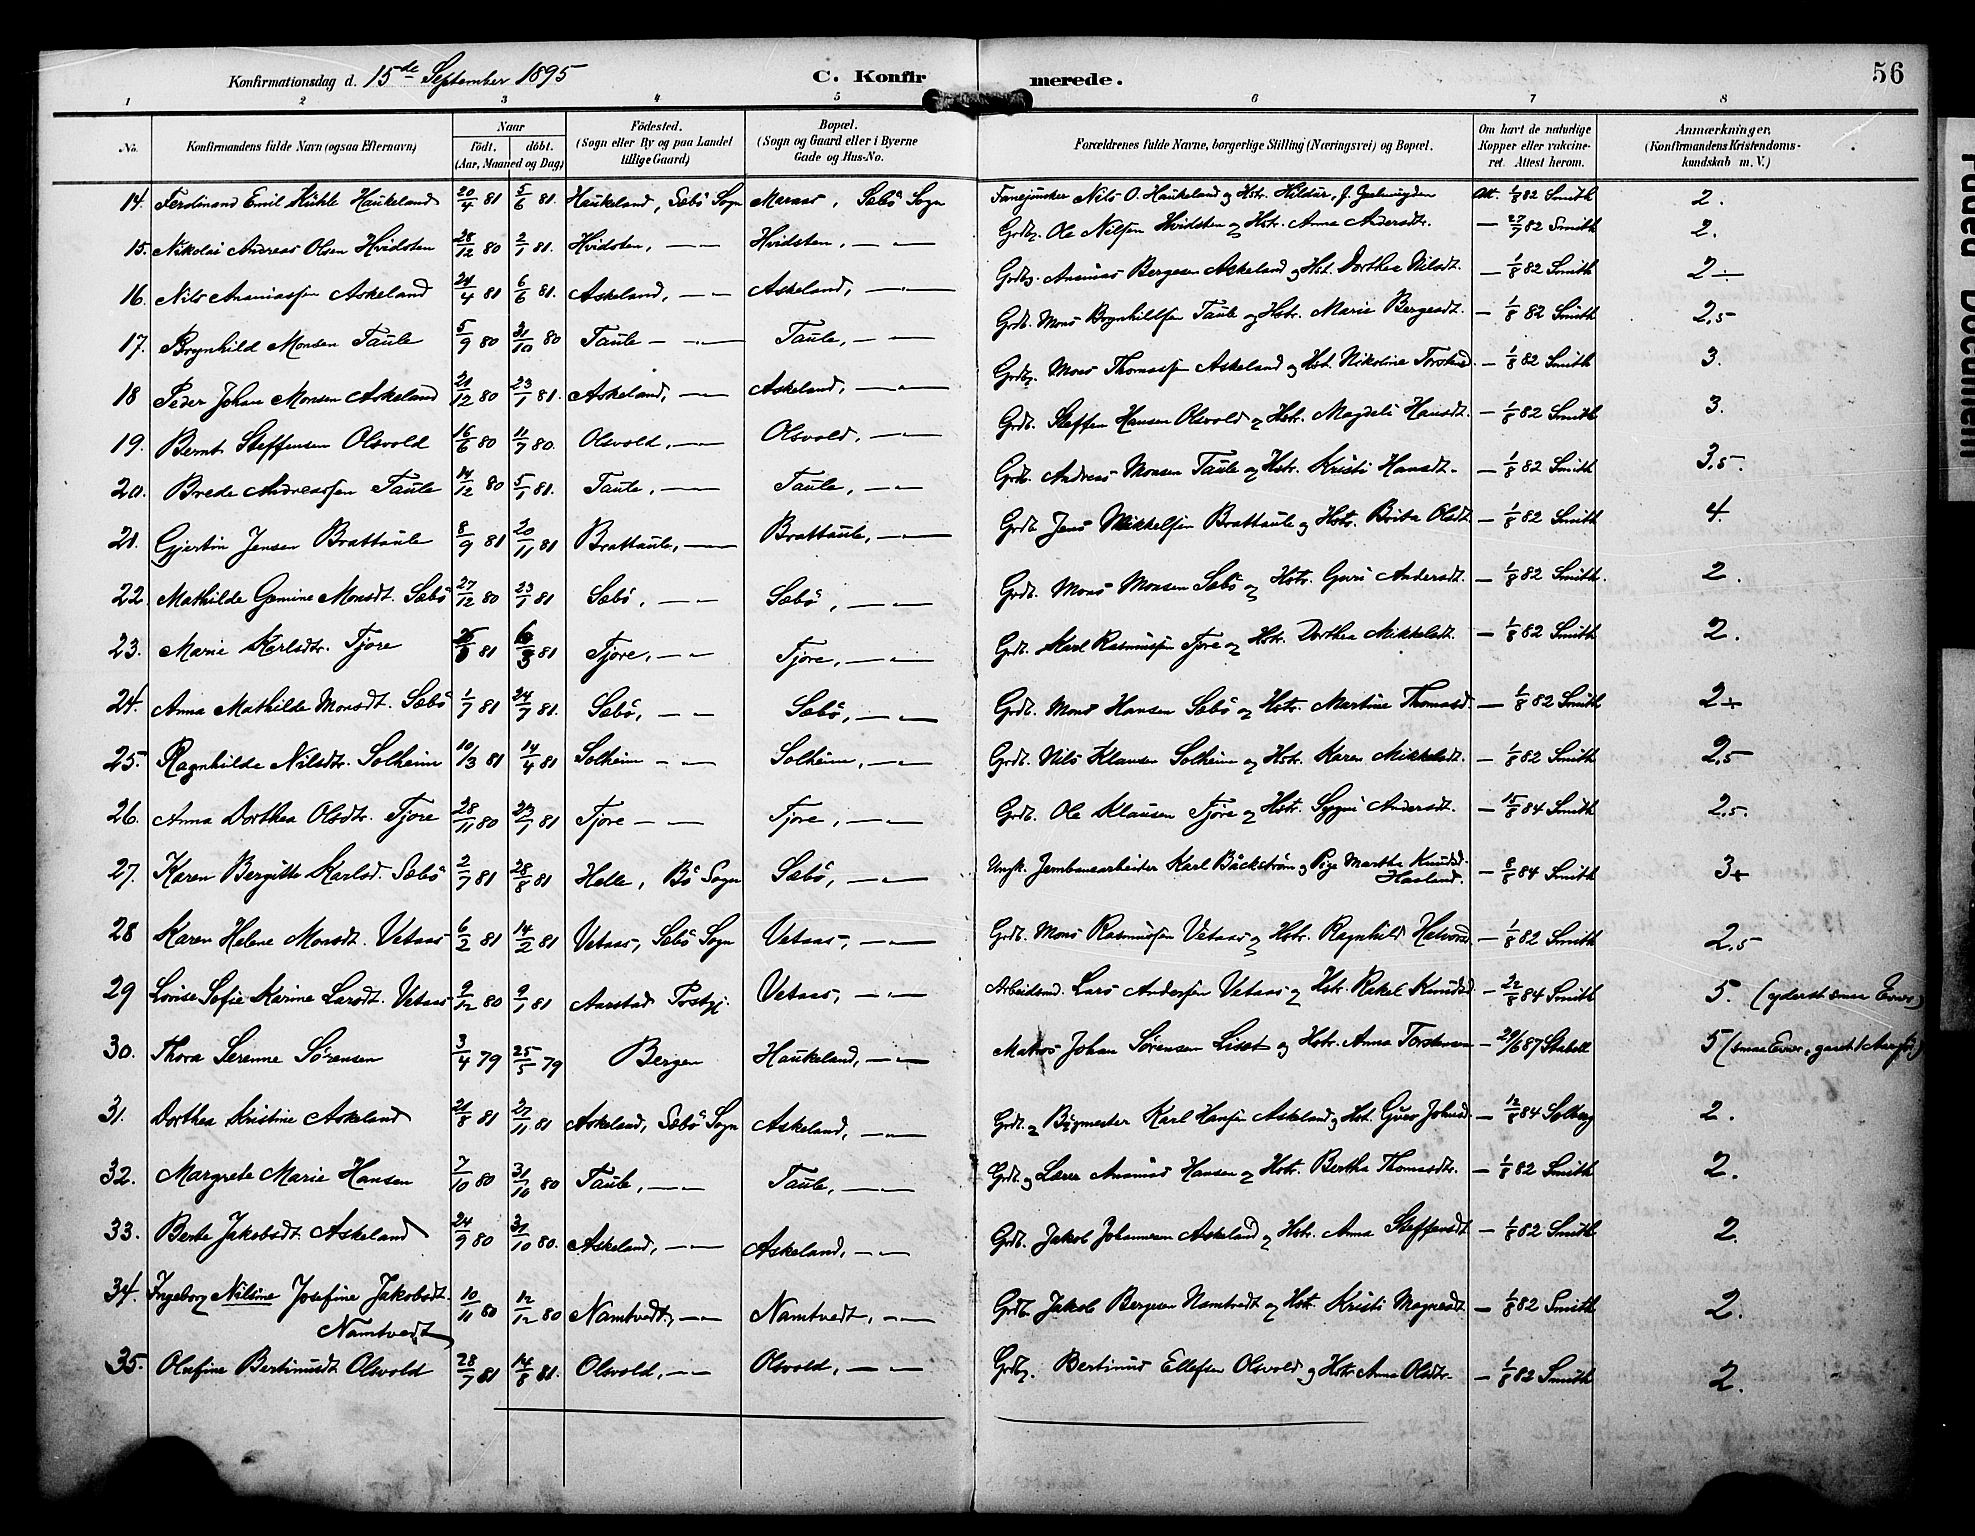 56
Konfirmationsdag d. 15de September 1895 C. Konfirmerede.
1 2 3 4 5 6 7 8
No. Konfirmandens fulde Navn (ogsaa Efternavn) Naar født. døbt. (Aar, Maaned og Dag) Fødested. (Sogn eller By og paa Landet tillige Gaard) Bopæl. (Sogn og Gaard eller i Byerne Gade og Hus-No. Forældrenes fulde Navne, borgerlige Stilling (Næringsvei) og Bopæl. Om havt de naturlige Kopper eller vakcineret. Attest herom. Anmærkninger, (Konfirmandens Kristendomskundskab m. V.)
14. Ferdinand Emil Kühle Haukeland 20/4 81 5/6 81. Haukeland, Sæbö Sogn Maraas, Sæbö Sogn Fanejunker Nils O. Haukeland og Hstr. Hildur, J. Att. 1/8 82 Smith 2.
15. Nikolai Andreas Olsen Hvidsten 28/12 80 2/1 81. Hvidsten, — — Hvidsten, — — Grdbg. Ole Nilsen Hvidsten og Hstr. Anna Andersdtr. — 27/7 82 Smith 2.
16. Nils Ananiassen Askeland 24/4 81 6/6 81. Askeland, — — Askeland, — — Grdbg. Ananias Bergesen Askeland og Hst. Dorthea Nilsdt. — 1/8 82 Smith 2 ÷
17. Brynhild Monsen Taule 5/9 80 31/10 80 Taule — — Taule, — — Grdb. Mons Brynhildsen Taule og Hstr. Marie Bergesdt. — 1/8 82 Smith 2,5
18 Peder Johan Monsen Askeland 21/12 80 23/1 81. Askeland, — — Askeland, — — Grdbg. Mons Thomassen Askeland og Hst. Nikoline Torstensd. — 1/8 82 Smith 3.
19. Bernt Steffensen Olsvold 16/6 80 11/7 80. Olsvold, — — Olsvold, — — Grdb. Steffen Hansen Olsvold og Hstr. Magdeli Hansdt. — 1/8 82 Smith 3.
20. Brede Andreassen Taule 14/12 80 5/1 81. Taule, — — Taule, — — Grdb. Andreas Monsen Taule og Hstr. Kristi Hansdt. — 1/8 82 Smith 3,5.
21. Gjertin Jensen Brattaule 8/9 81 20/11 81 Brattaule, — — Brattaule, — — Grdb. Jens Mikkelsen Brattaule og Hstr. Brita Olsdt. — 1/8 82 Smith 4.
22. Mathilde Gemine Monsdt. Sæbö 27/12 80 23/1 81 Sæbö, — — Sæbö, — — Grdb. Mons Monsen Sæbö og Hstr. Guri Andersdt. — 1/8 82 Smith. 2.
23. Marie Karlsdtr. Tjore 81 6/3 81 Tjore, — — Tjore, — — Grdb. Karl Rasmussen Tjore og Hstr. Dorthea Mikkelsdt. — 1/8 82 Smith 2.
24. Anna Mathilde Monsdt. Sæbö 1/7 81 24/7 81. Sæbö, — — Sæbö, — — Grdb. Mons Hansen Sæbö og Hstr. Martine Thomasd. — 1/8 82 Smith 2+
25. Ragnhilde Nilsdtr. Solheim 10/3 81 14/4 81 Solheim — — Solheim, — — Grdb. Nils Klausen Solheim og Hstr. Karen Mikkelsdt. — 1/8 82 Smith 2,5
26. Anna Dorthea Olsdtr. Tjore 28/11 80 23/1 81 Tjore — — Tjore, — — Grdb. Ole Klausen Tjore og Hstr. Sygni Andersdt. — 15/8 84 Smith 2,5.
27. Karen Bergitte Karlsd. Sæbö 2/7 81 28/8 81 Helle, Bö Sogn Sæbö, — — Ungk. Jernbanearbeider Karl Bäckström og Pige Martha Knudsd. Hasland. — 8/8 84 Smith 3+
28 Karen Helene Monsdt. Vetaas 6/2 81 14/2 81 Vetaas, Sæbö Sogn Vetaas, — — Grdb. Mons Rasmussen Vetaas og Hstr. Ragnhild Halvorsd. — 1/8 82 Smith 2,5
29 Lovise Sofie Karine Larsdt. Vetaas 9/12 80 9/1 81 Aarstad Prstgj. Vetaas, — — Arbeidsmd. Lars Andersen Vetaas og Hstr. Rakel Knudsd. — 22/8 84 Smith 5. (yderst smaa Evner)
30. Thora Serenne Sörensen 3/4 79 25/5 79 Bergen Haukeland, — — Matros Johan Sörensen Liset og Hstr. Anna Torstensen — 29/6 87 Stabell 5 (smaa Evner,
31. Dorthea Kristine Askeland 21/8 81 27/11 81 Askeland, Sæbö Sogn Askeland, — — Grdb. og Bygmester Karl Hansen Askeland og Hst. Guro Johnsd. — 12/8 84 Solberg 2.
32. Margrete Marie Hansen 7/10 80 31/10 80 Taule, — — Taule, — — Grdb. og Lærer Ananias Hansen og Hstr. Bertha Thomasdtr. — 1/8 82 Smith 2.
33. Berte Jakobsdt. Askeland 24/9 80 31/10 80. Askeland, — — Askeland, — — Grdb. Jakob Johannesen Askeland og Hstr. Anna Steffensdt. — 1/8 82 Smith 2.
34. Ingeborg Nilsine Josefine Jakobsdt. Namtvedt 10/11 80 12/12 80 Namtvedt, — — Namtvedt, — — Grdb. Jakob Bergesen Namtvedt og Hstr. Kristi Magnesdt. — 1/8 82 Smith 2.
35. Olufine Bertinusdt. Olsvold 28/7 81 14/8 81. Olsvold, — — Olsvold, — — Grdbg. Bertinus Ellefsen Olsvold og Hstr. Anna Olsdtr. — 1/8 82 Smith 2.